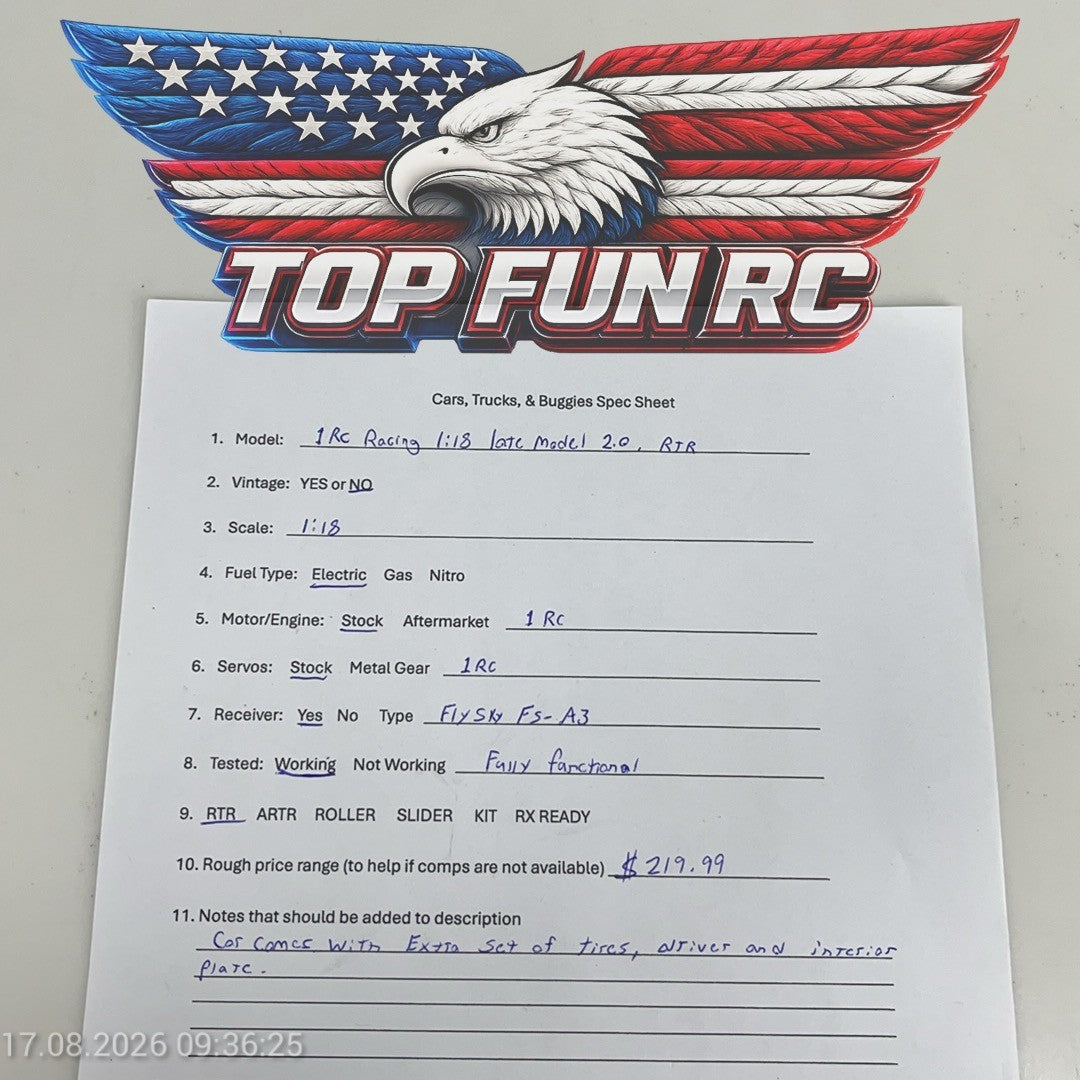 TOP FUN RC
Cars, Trucks, & Buggies Spec Sheet
1. Model: 1RC Racing 1:18 late Model 2.0, RTR
2. Vintage: YES or NO
3. Scale: 1:18
4. Fuel Type: Electric Gas Nitro
5. Motor/Engine: Stock Aftermarket 1 RC
6. Servos: Stock Metal Gear 1RC
7. Receiver: Yes No Type FlySky FS-A3
8. Tested: Working Not Working Fully functional
9. RTR ARTR ROLLER SLIDER KIT RX READY
10. Rough price range (to help if comps are not available) $219.99
11. Notes that should be added to description
Car comes with Extra set of tires, driver and interior
plate.
17.08.2026 09:36:25